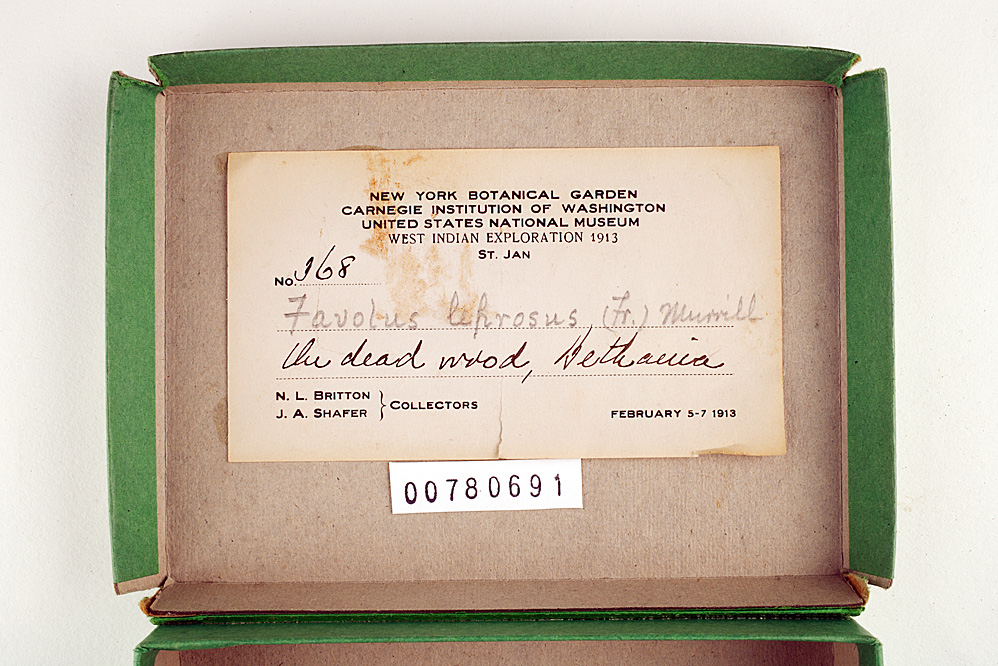 NEW YORK BOTANICAL GARDEN
CARNEGIE INSTITUTION OF WASHINGTON
UNITED STATES NATIONAL MUSEUM
WEST INDIAN EXPLORATION 1913
ST. JAN
No. 368
Favolus leprosus (Fr.) Murrill
On dead wood, Bethania
N. L. BRITTON
J. A. SHAFER } COLLECTORS
FEBRUARY 5-7 1913
00780691